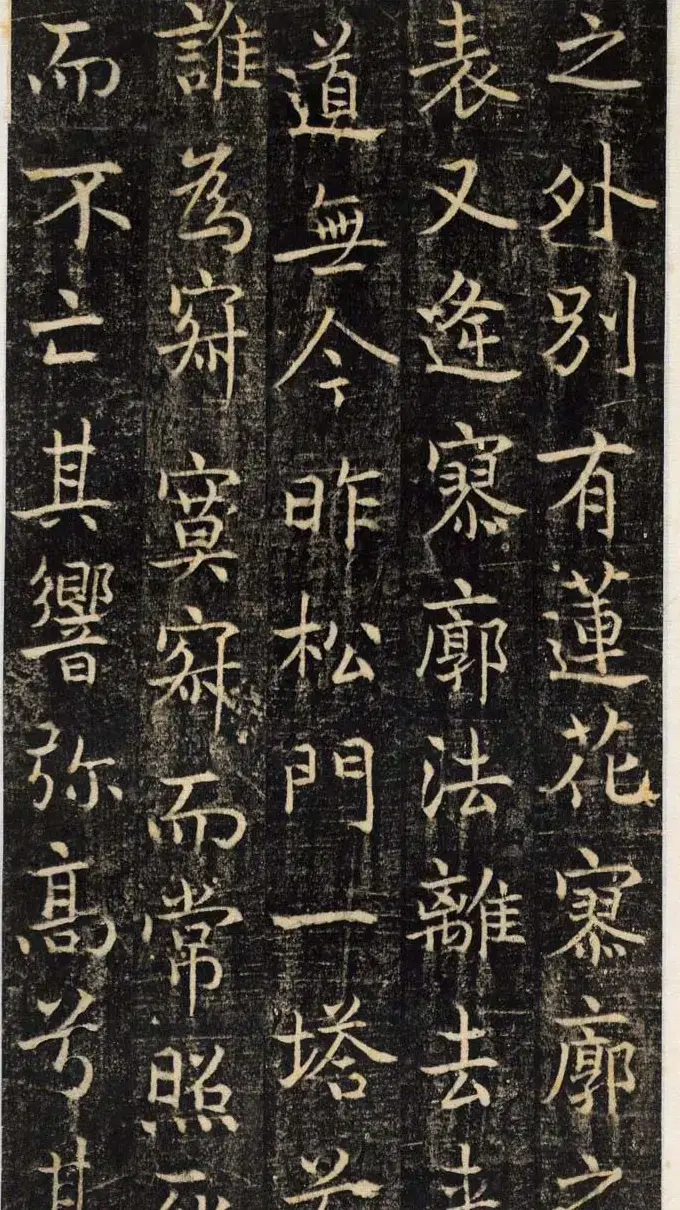 之外别有蓮花寥廓之
表又逢寥廓法離去來
道無今昨松門一塔兮
誰為寂寞寂而常照
而不亡其響弥高兮其